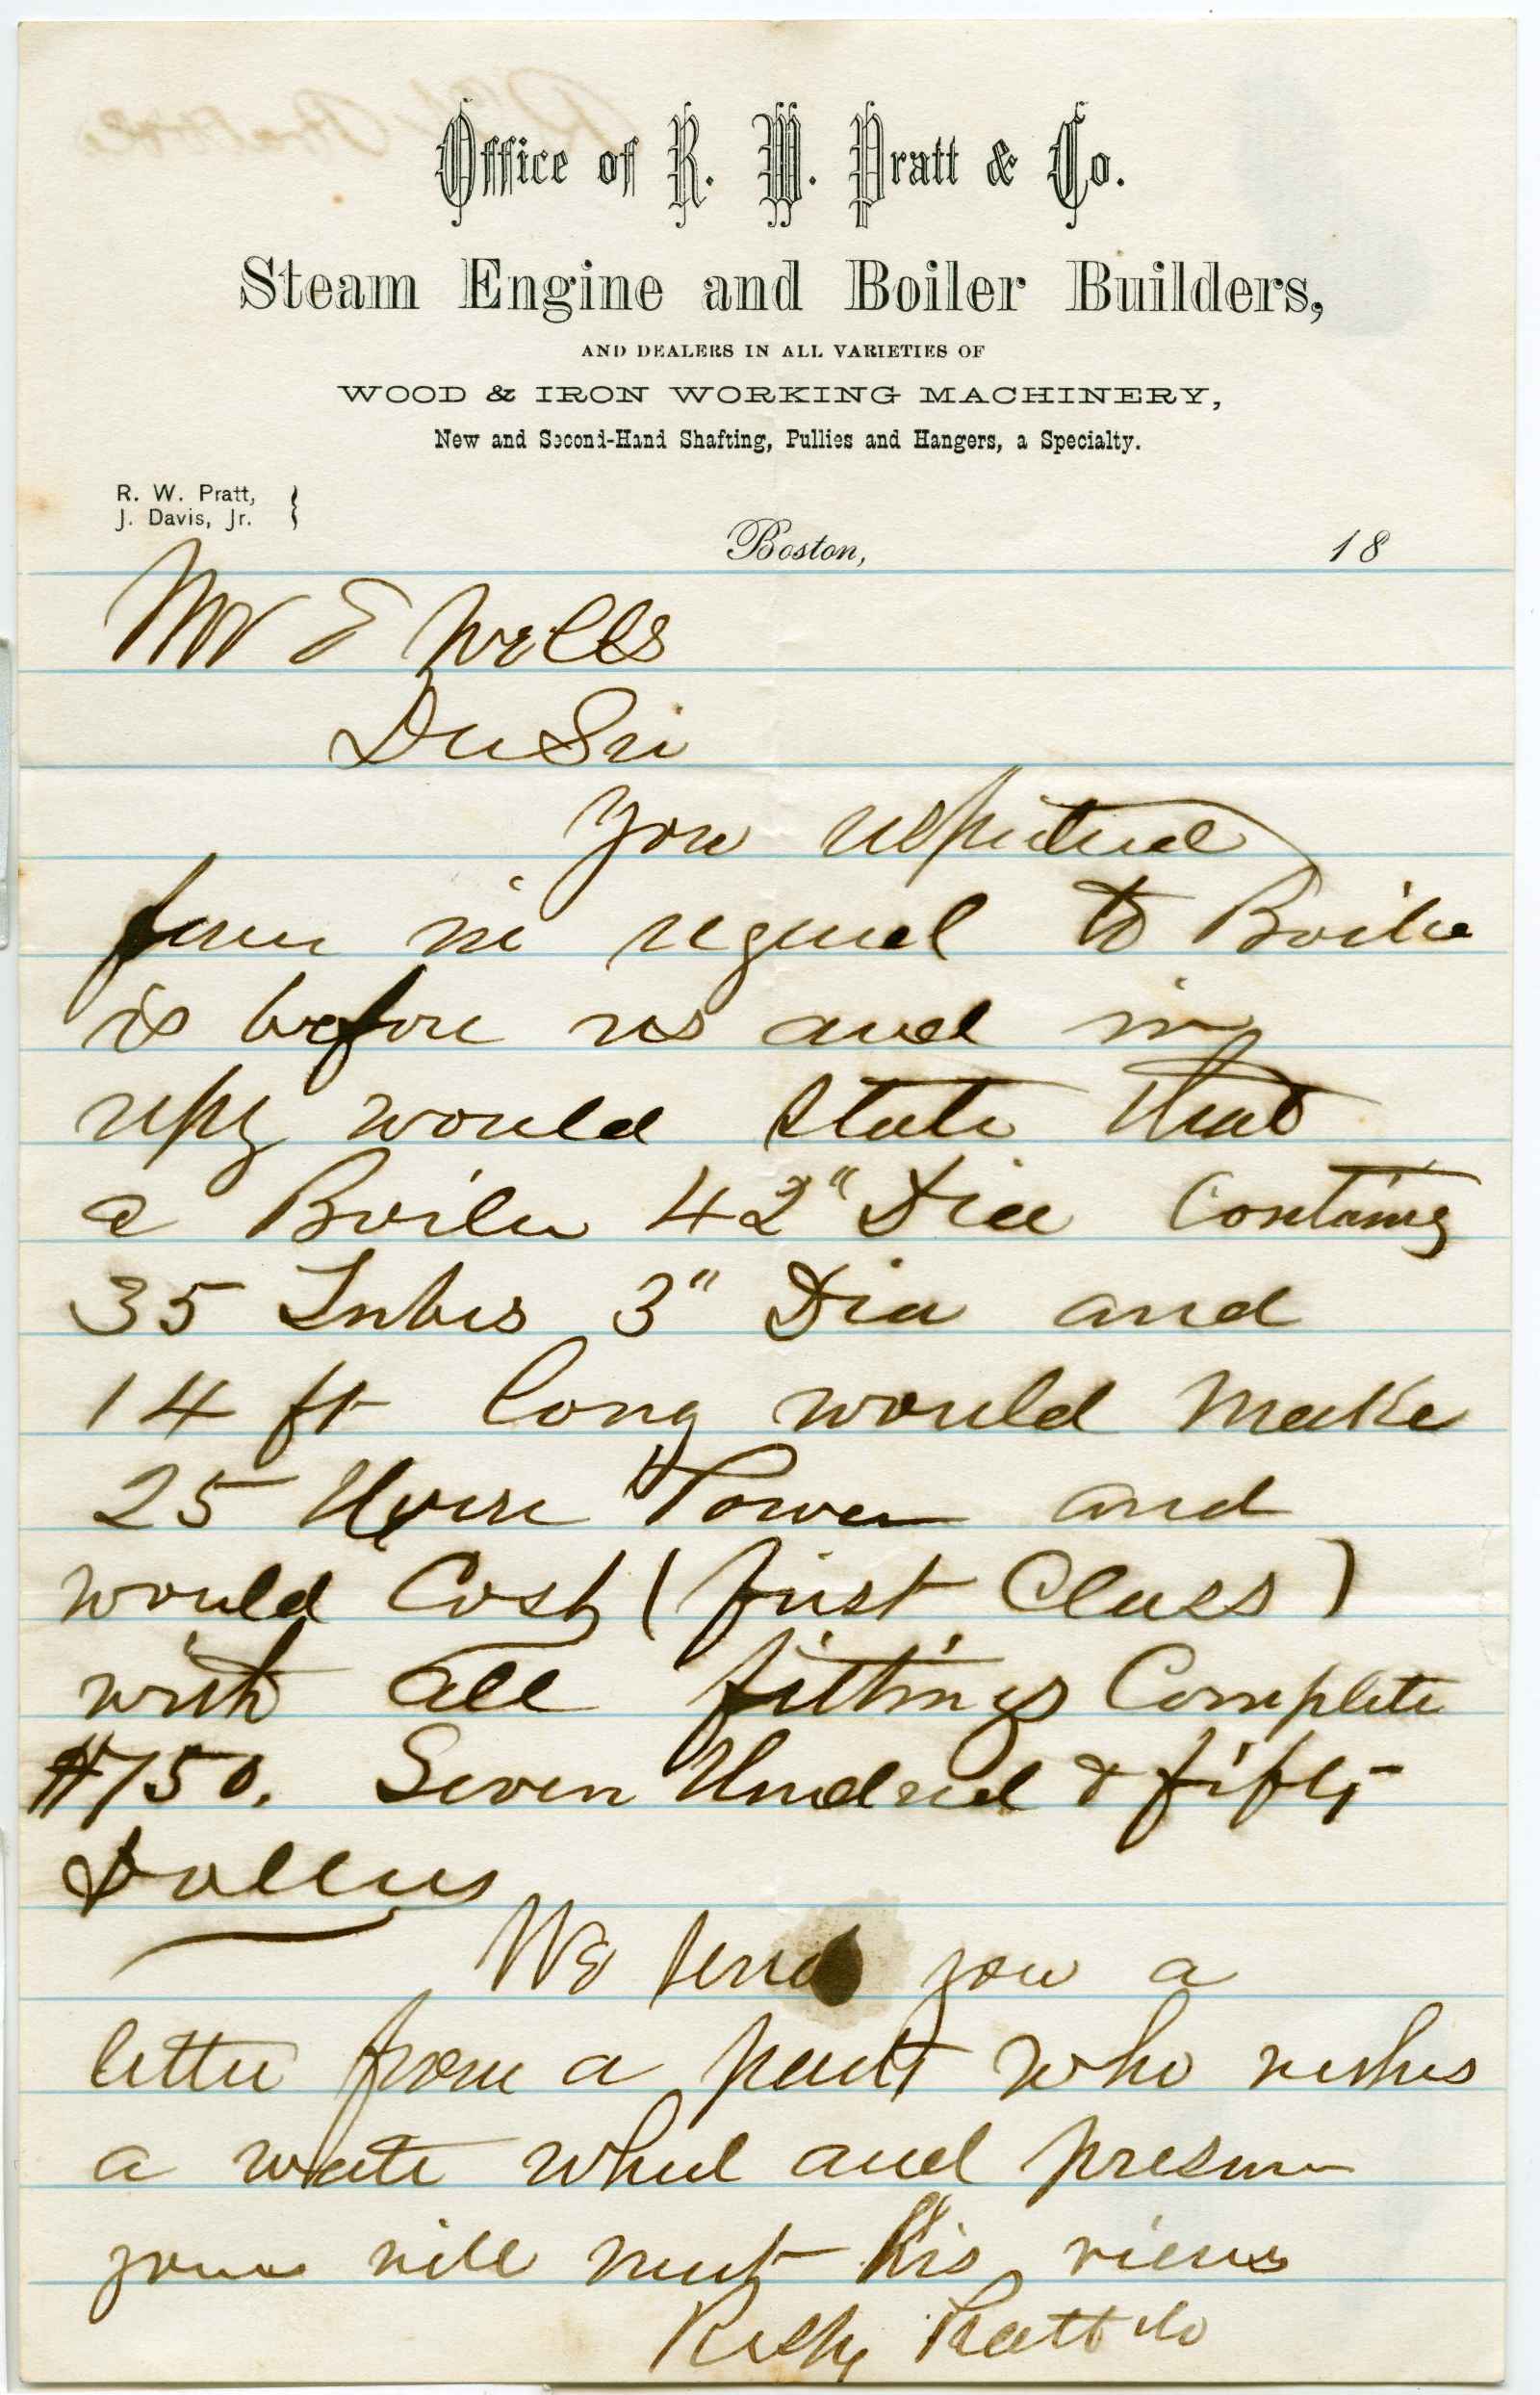 Office of R. W. Pratt & Co.
Steam Engine and Boiler Builders,
AND DEALERS IN ALL VARIETIES OF
WOOD & IRON WORKING MACHINERY,
New and Second-Hand Shafting, Pullies and Hangers, a Specialty.
R. W. Pratt,
J. Davis, Jr.
Boston, 18
Mr E Wells
Dr Sir
Your
favor in regard to Boiler
is before us and in
reply would state that
a Boiler 42" Dia Containg
35 Tubes 3" Dia and
14 ft long would Make
25 Horse Power and
would Cost (first Class)
with all fittings Complete
$750. Seven Hundred & fifty
Dollars
We send you a
letter from a party who wishes
a water wheel and presume
yours will meet his views
Resply Pratt & Co